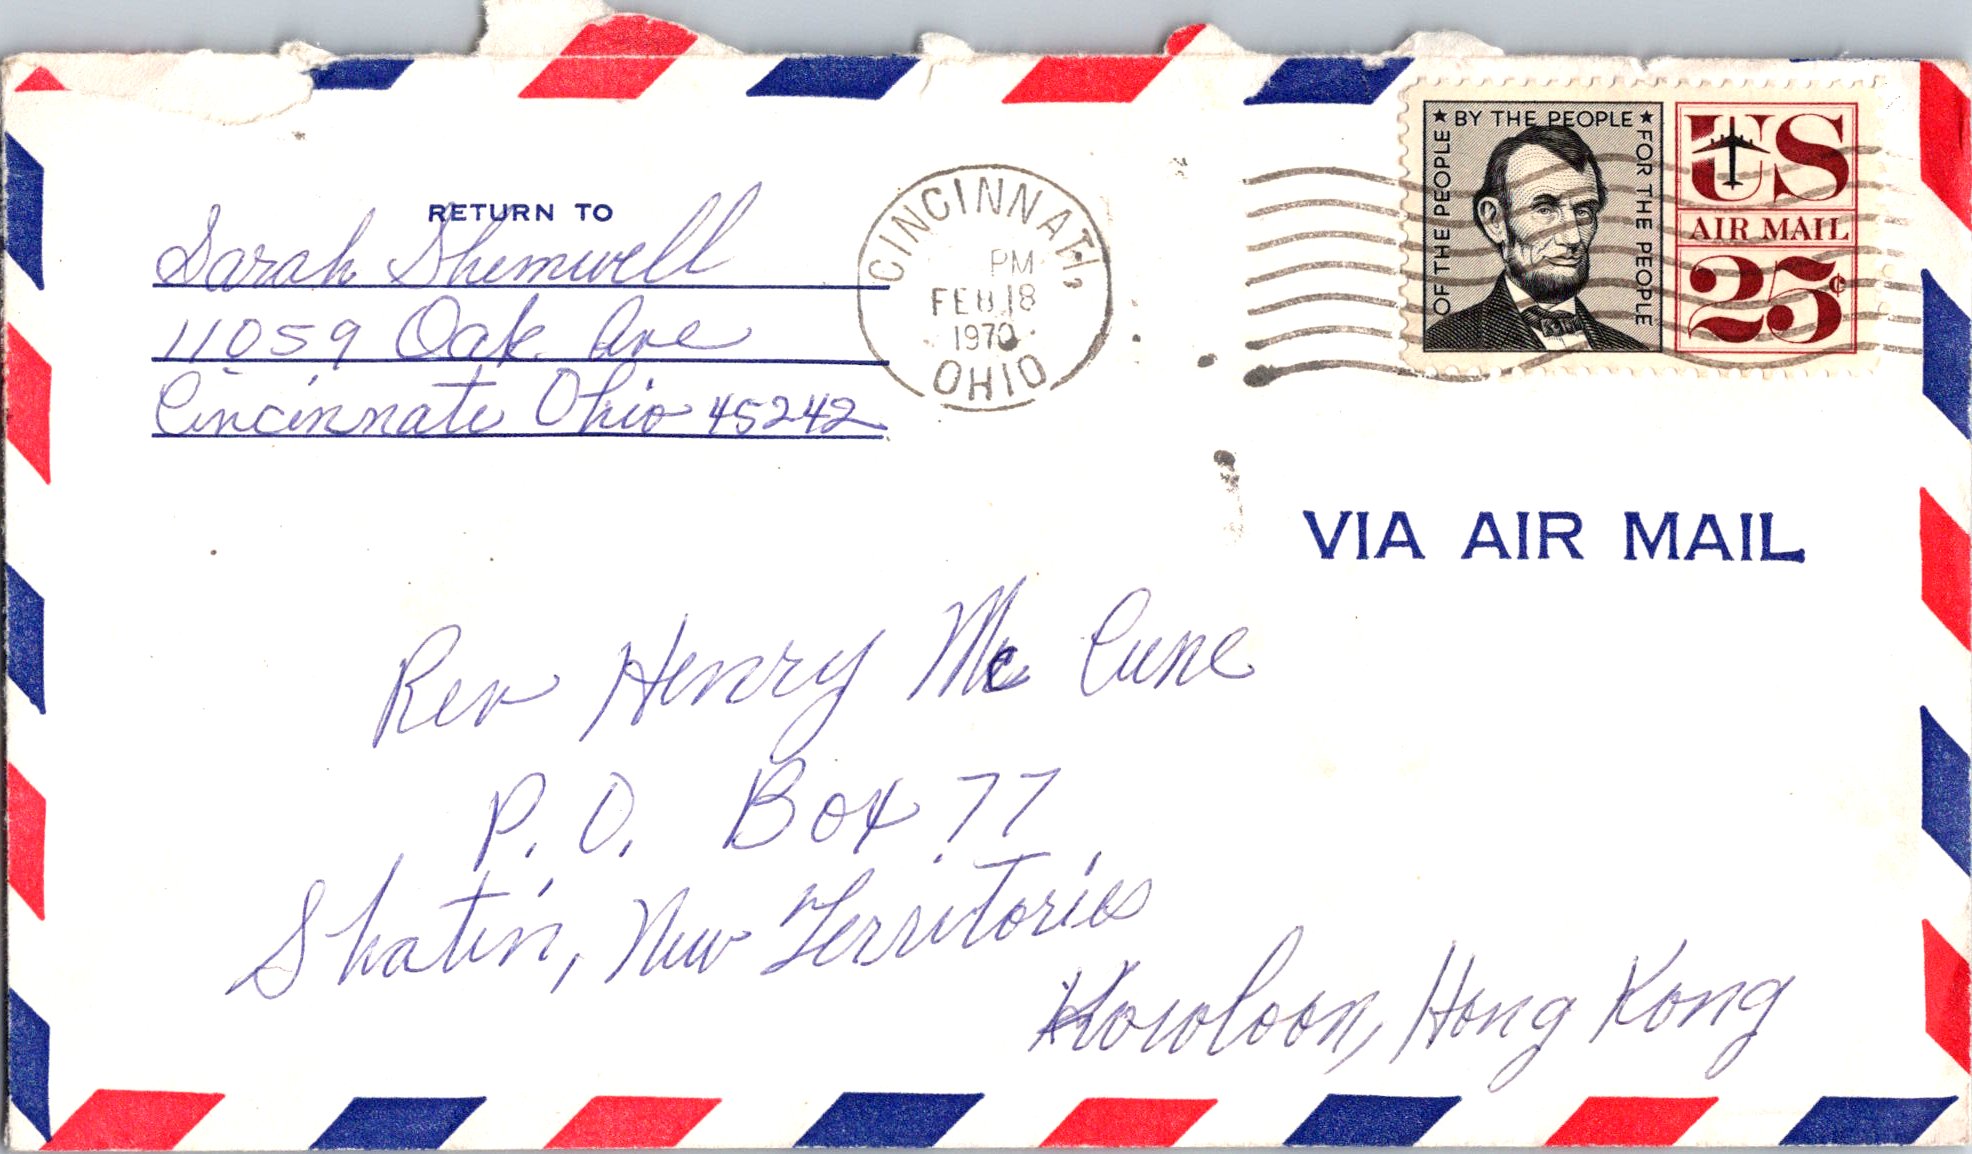 RETURN TO
Sarah Shemwell
11059 Oak Ave
Cincinnati Ohio 45242
CINCINNATI,
PM
FEB 18
1970
OHIO
OF THE PEOPLE ★ BY THE PEOPLE ★ FOR THE PEOPLE
US
AIR MAIL
25¢
VIA AIR MAIL
Rev Henry Mc Cune
P. O. Box 77
Shatin, New Territories
Kowloon, Hong Kong